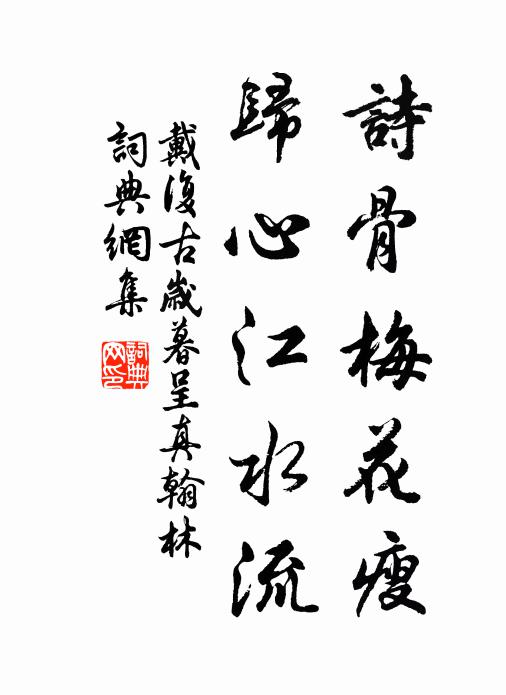 詩骨梅花瘦
歸心江水流
戴復古歲暮呈真翰林
詞典網集
詞典
网印